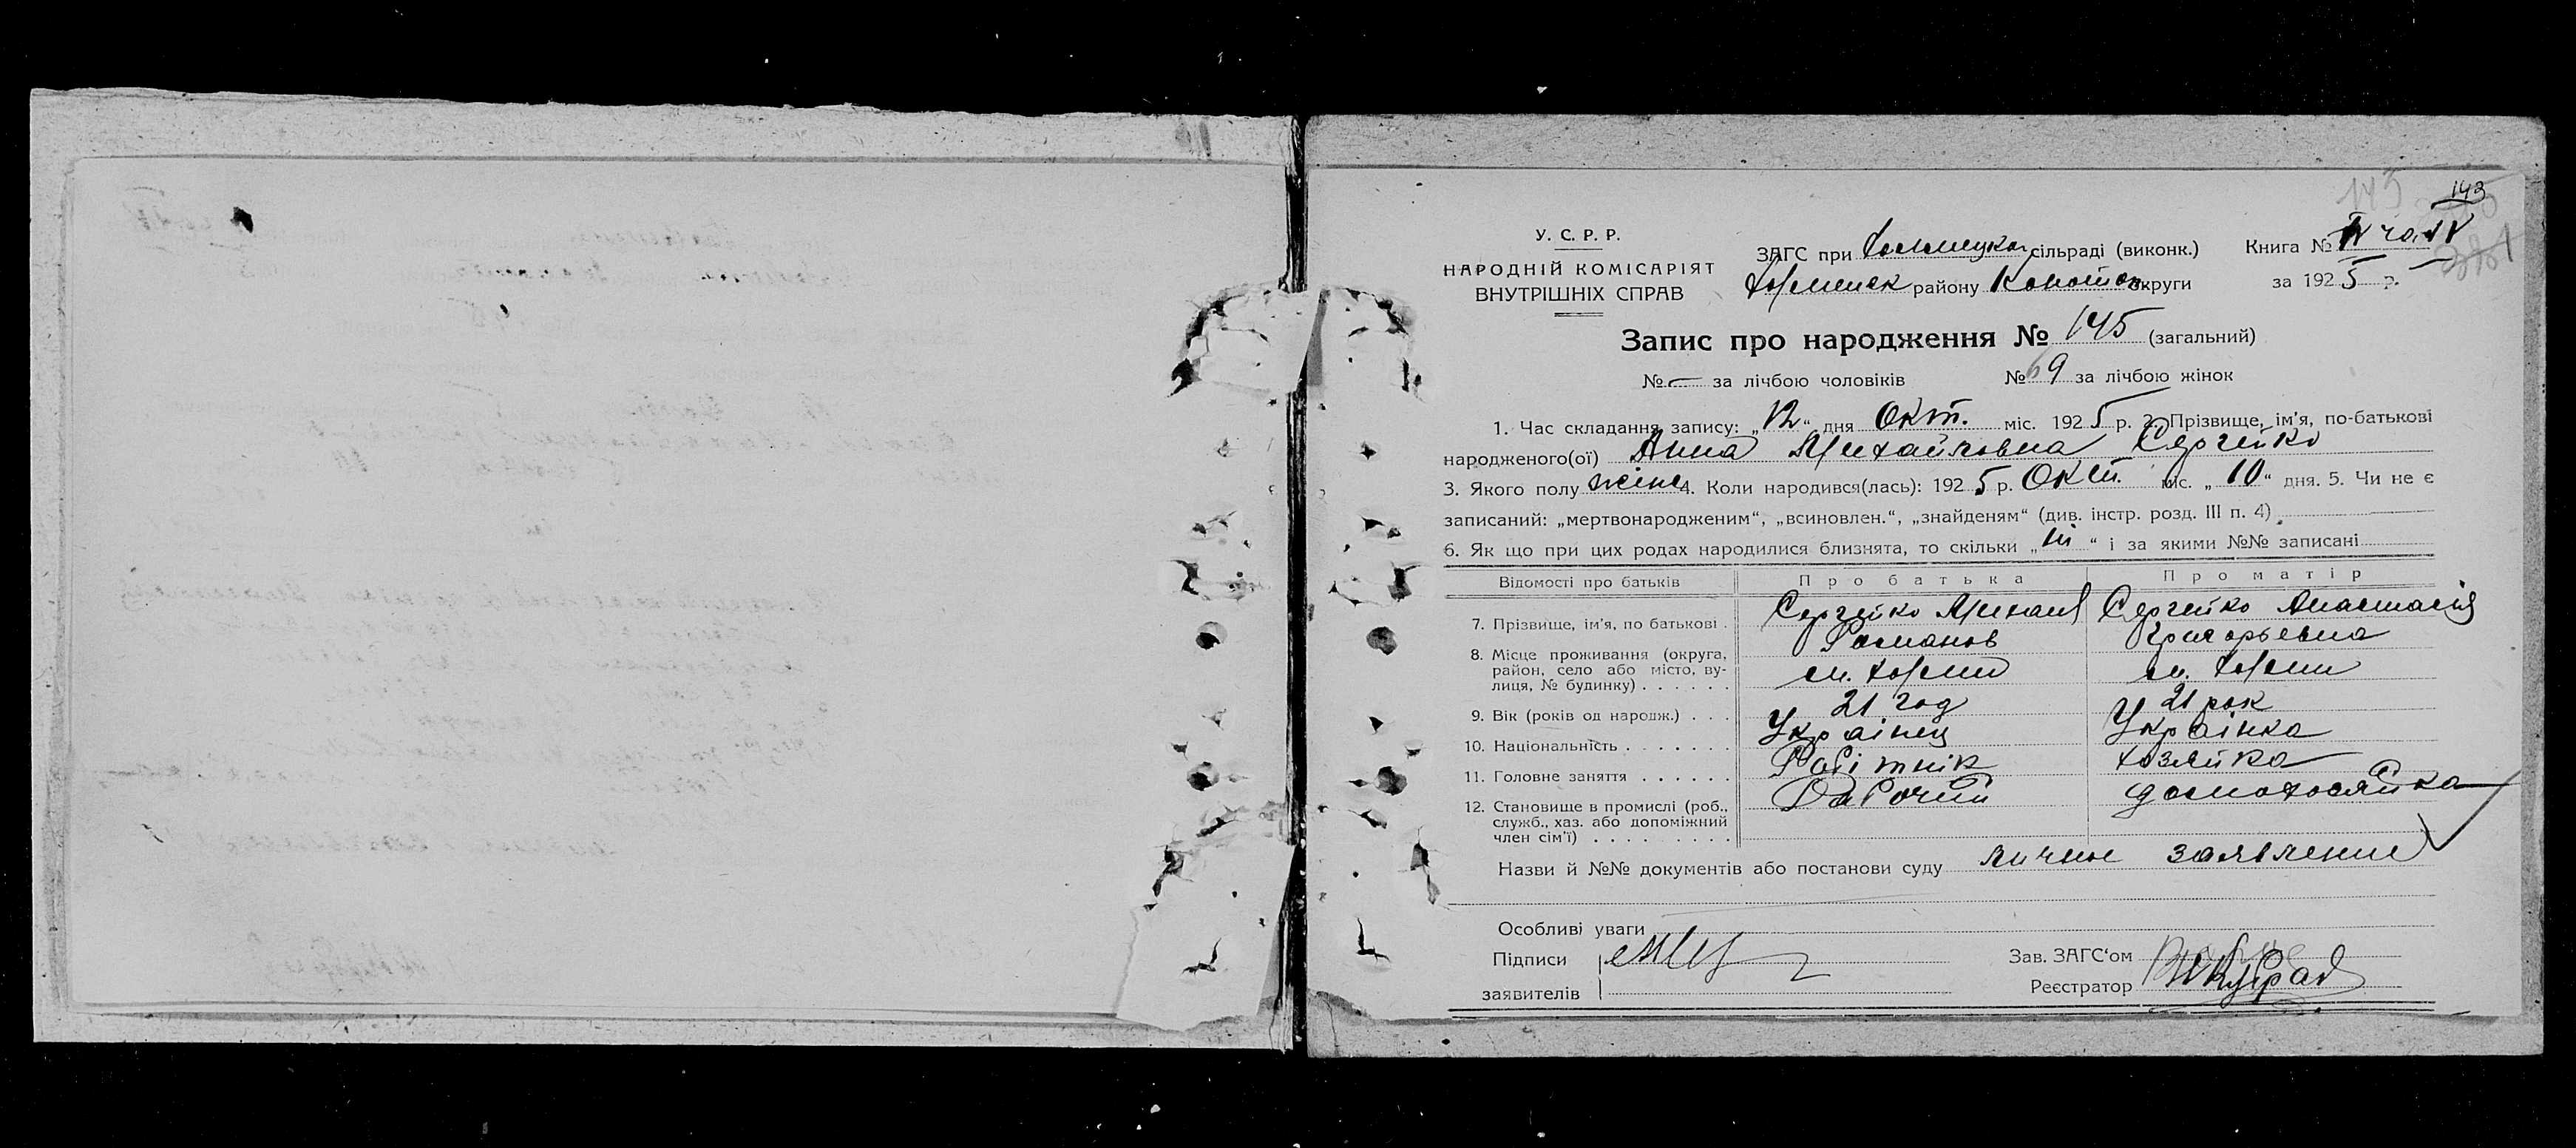 145 143
У. С. Р. Р.
НАРОДНІЙ КОМІСАРІЯТ
ВНУТРІШНІХ СПРАВ
ЗАГС при сільраді (виконк.) Книга №
району Конотоп округи за 1925 р.
Запис про народження № 145 (загальний)
№ — за лічбою чоловіків № 69 за лічбою жінок
1. Час складання запису: „12“ дня Окт. міс. 1925 р. 2. Прізвище, ім’я, по-батькові
народженого(ої) Анна Михайловна Сергейко
3. Якого полу жіно 4. Коли народився(лась): 1925 р. Окт. міс. „10“ дня. 5. Чи не є
записаний: „мертвонародженим“, „всиновлен.“, „знайденям“ (див. інстр. розд. III п. 4)
6. Як що при цих родах народилися близнята, то скільки „ні“ і за якими №№ записані
Відомості про батьків Про батька Про матір
7. Прізвище, ім’я, по батькові . Сергейко Михаил Романов Сергейко Анастасія Григорьевна
8. Місце проживання (округа, район, село або місто, вулиця, № будинку) . . . . . .
9. Вік (років од народж.) . . . 21 год 21 рок
10. Національність . . . . . . . Українец Українка
11. Головне заняття . . . . . . Робітнік хозяйка
12. Становище в промислі (роб., служб., хаз. або допоміжний член сім’ї) . . . . . . . . Рабочий домохосяйка
Назви й №№ документів або постанови суду личное заявление
Особливі уваги
Підписи
заявителів
Зав. ЗАГС‘ом
Реєстратор